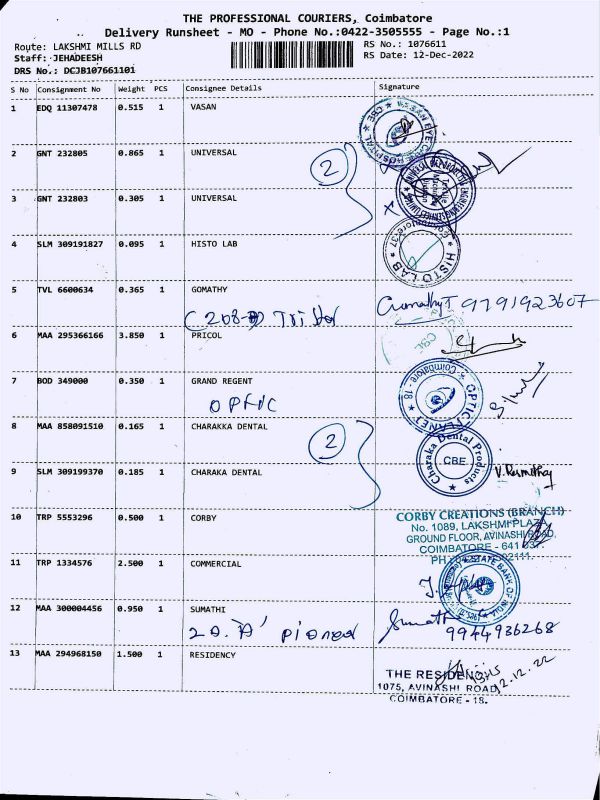 THE PROFESSIONAL COURIERS, Coimbatore
Delivery Runsheet - MO - Phone No.:0422-3505555 - Page No.:1
Route: LAKSHMI MILLS RD RS No.: 1076611
Staff: JEHADEESH RS Date: 12-Dec-2022
DRS No.: DCJB107661101
S No Consignment No Weight PCS Consignee Details Signature
1 EDQ 11307478 0.515 1 VASAN
VASAN EYE CARE HOSPITAL CBE
2 GNT 232805 0.865 1 UNIVERSAL
2
3 GNT 232803 0.305 1 UNIVERSAL
4 SLM 309191827 0.095 1 HISTO LAB
HISTO LAB Coimbatore-37
5 TVL 6600634 0.365 1 GOMATHY
Gomathy T 9791923607
C 208
6 MAA 295366166 3.850 1 PRICOL
7 BOD 349000 0.350 1 GRAND REGENT
OPTIC PLANET Coimbatore - 18
8 MAA 858091510 0.165 1 CHARAKKA DENTAL
2
Charaka Dental Products CBE
9 SLM 309199370 0.185 1 CHARAKA DENTAL
10 TRP 5553296 0.500 1 CORBY
CORBY CREATIONS (BRANCH)
No. 1089, LAKSHMI PLAZA,
GROUND FLOOR, AVINASHI ROAD,
COIMBATORE - 641 037.
11 TRP 1334576 2.500 1 COMMERCIAL
STATE BANK OF INDIA
12 MAA 300004456 0.950 1 SUMATHI
Sumathi
9944936268
13 MAA 294968150 1.500 1 RESIDENCY
12.12.22
THE RESIDENCY
1075, AVINASHI ROAD
COIMBATORE - 18.